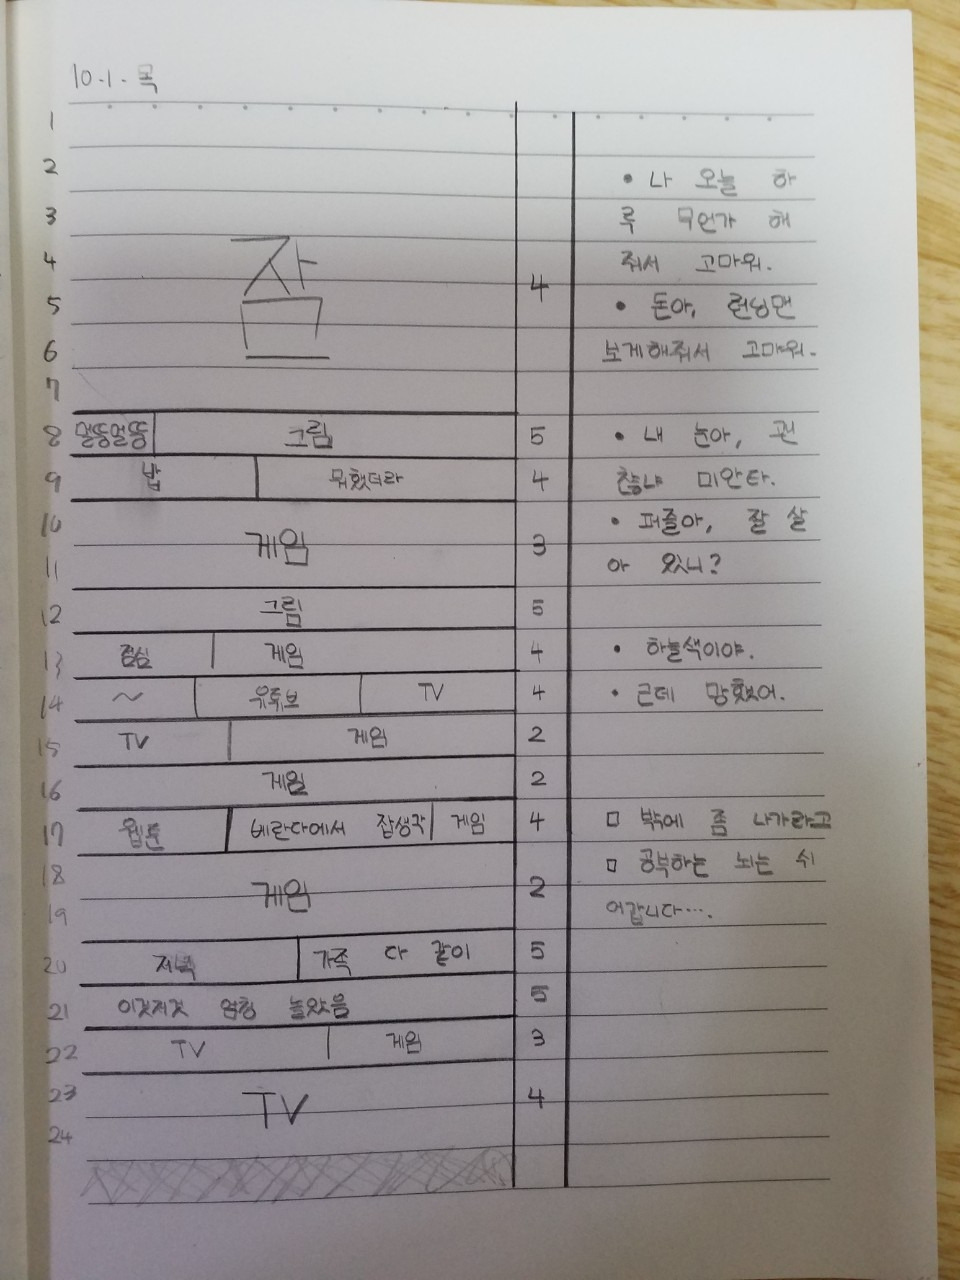 10.1. 목
1
2 • 나 오늘 하
3 루 무언가 해
4 잠 4 줘서 고마워.
5 • 돈아, 런닝맨
6 보게해줘서 고마워.
7
8 멀뚱멀뚱 그림 5 • 내 눈아, 괜
9 밥 뭐했더라 4 찮냐 미안타.
10 • 퍼즐아, 잘 살
11 게임 3 아 있니?
12 그림 5
13 점심 게임 4 • 하늘색이야.
14 ~ 유튜브 TV 4 • 근데 망했어.
15 TV 게임 2
16 게임 2
17 웹툰 베란다에서 잡생각 게임 4 □ 밖에 좀 나가라고
18 □ 공부하는 뇌는 쉬
19 게임 2 어갑니다....
20 저녁 가족 다 같이 5
21 이것저것 엄청 놀았음 5
22 TV 게임 3
23 TV 4
24